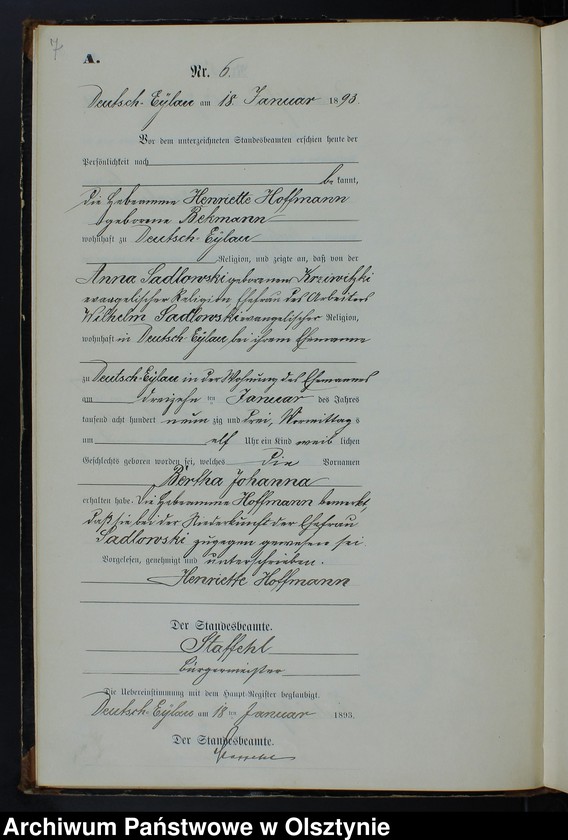 A.
Nr. 6.
Deutsch-Eylau am 18. Januar 1893.
Vor dem unterzeichneten Standesbeamten erschien heute der
Persönlichkeit nach
be kannt,
die Hebeamme Henriette Hoffmann
geborene Bekmann
wohnhaft zu Deutsch-Eylau
Religion, und zeigte an, daß von der
Anna Sadlowski geborenen Krziwitzki
evangelischer Religion Ehefrau des Arbeiters
Wilhelm Sadlowski evangelischer Religion,
wohnhaft in Deutsch-Eylau bei ihrem Ehemanne
zu Deutsch-Eylau in der Wohnung des Ehemannes
am dreizehn ten Januar des Jahres
tausend acht hundert neun zig und drei, Vormittag s
um elf Uhr ein Kind weib lichen
Geschlechts geboren worden sei, welches die Vornamen
Bertha Johanna
erhalten habe. Die Hebeamme Hoffmann bemerkt,
daß sie bei der Niederkunft der Ehefrau
Sadlowski zugegen gewesen sei
Vorgelesen, genehmigt und unterschrieben.
Henriette Hoffmann
Der Standesbeamte.
Staffehl
Bürgermeister
Die Uebereinstimmung mit dem Haupt-Register beglaubigt.
Deutsch-Eylau am 18 ten Januar 1893.
Der Standesbeamte.
Staffehl
Archiwum Państwowe w Olsztynie